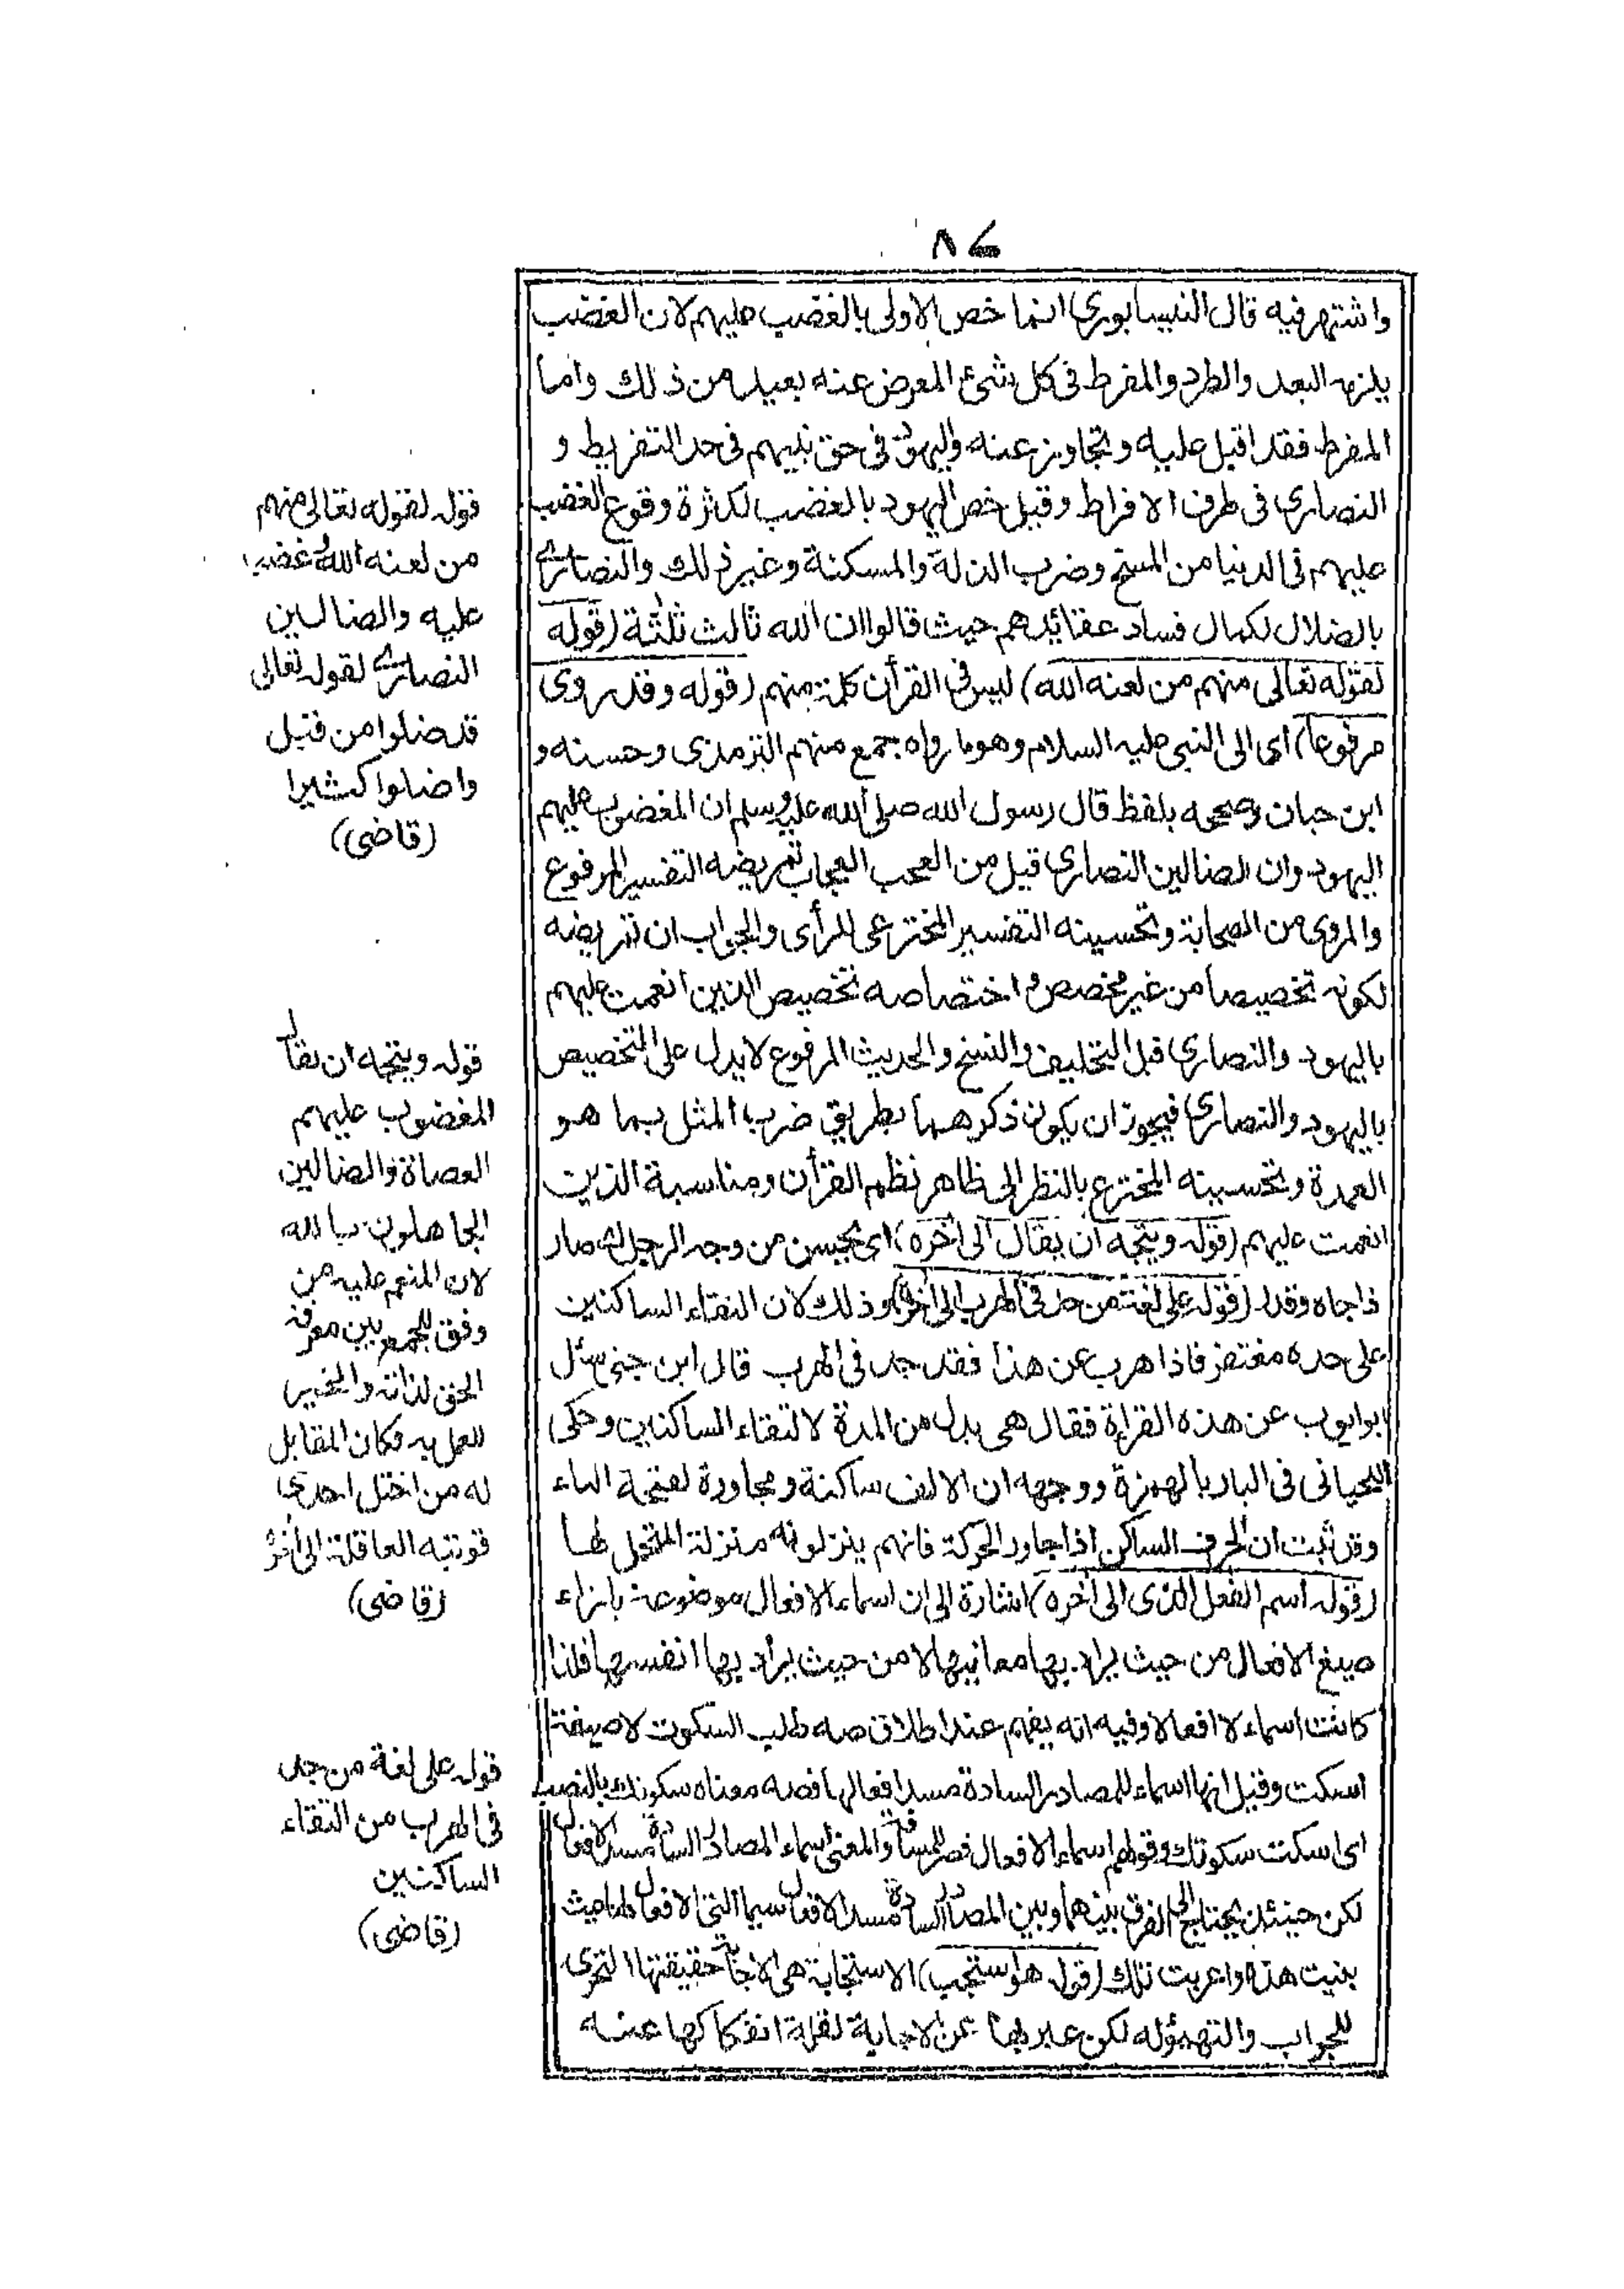 ٨٤
واشتهر فيه قال النيسابورى انما خص الاولى بالغضب عليهم لان الغضب
يلزمه البعد والطرد والمفرط فى كل شئ المعرض عنه بعيد من ذلك واما
المفرط فقد اقبل عليه وتجاوز عنه واليهود فى حق نبيهم فى حد التفريط و
النصارى فى طرف الافراط وقيل خص اليهود بالغضب لكثرة وقوع الغضب
عليهم فى الدنيا من المسخ وضرب الذلة والمسكنة وغير ذلك والنصارى
بالضلال لكمال فساد عقائدهم حيث قالوا ان الله ثالث ثلثة (قوله
لقوله تعالى منهم من لعنه الله) ليس فى القرأن كلمة منهم (قوله وقد روى
مرفوعا) اى الى النبى عليه السلام وهو ما رواه جمع منهم الترمذى وحسنه و
ابن حبان وصححه بلفظ قال رسول الله صلى الله عليه وسلم ان المغضوب عليهم
اليهود وان الضالين النصارى قيل من العجب العجاب تمريضه التفسير المرفوع
والمروى من الصحابة وتحسينه التفسير المخترع للرأى والجواب ان تمريضه
لكونه تخصيصا من غير مخصص واختصاصه تخصيص الذين انعمت عليهم
باليهود والنصارى قبل التخليف والنسخ والحديث المرفوع لا يدل على التخصيص
باليهود والنصارى فيجوز ان يكون ذكرهما بطريق ضرب المثل بما هو
العمدة وتحسينه المخترع بالنظر الى ظاهر نظم القرأن ومناسبة الذين
انعمت عليهم (قوله ويتجه ان يقال الى أخره) اى يحسن من وجه الرجل اى صار
ذا جاه وقدر (قوله على لغة من جد فى الهرب الى أخره) وذلك لان التقاء الساكنين
على حده مغتفر فاذا هرب عن هذا فقد جد فى الهرب قال ابن جنى سئل
ابو ايوب عن هذه القراءة فقال هى بدل من المدة لالتقاء الساكنين وحكى
اللحيانى فى الباز بالهمزة ووجهه ان الالف ساكنة ومجاورة لفتحة الباء
وقد ثبت ان الحرف الساكن اذا جاور الحركة فانهم ينزلونه منزلة المتحمل لها
(قوله اسم الفعل الذى الى أخره) اشارة الى ان اسماء الافعال موضوعة بازاء
صيغ الافعال من حيث يراد بها معانيها لا من حيث يراد بها انفسها فلذا
كانت اسماء لا افعالا وفيه انه يفهم عند اطلاق صه طلب السكوت لا صيغة
اسكت وقيل انها اسماء للمصادر السادة مسد افعالها فصه معناه سكوتك بالنصب
اى اسكت سكوتك وقولهم اسماء الافعال قصر للمسافة والمعنى اسماء المصادر السادة مسد الافعال
لكن حينئذ يحتاج الى الفرق بينهما وبين المصادر السادة مسد الافعال سيما التى لا فعل لها حيث
بنيت هذه واعربت تلك (قوله هو استجب) الاستجابة هى الاجابة حقيقتها التحرى
للجواب والتهيؤ له لكن عبر بها عن الاجابة لقلة انفكاكها عنه
قوله لقوله تعالى منهم
من لعنه الله وغضب
عليه والضالين
النصارى لقوله تعالى
قد ضلوا من قبل
واضلوا كثيرا
(قاضى)
قوله ويتجه ان يقال
المغضوب عليهم
العصاة والضالين
الجاهلون بالله
لان المنعم عليه من
وفق للجمع بين معرفة
الحق لذاته والخير
للعمل به فكان المقابل
له من اختل احدى
قوتيه العاقلة الى أخره
(قاضى)
قوله على لغة من جد
فى الهرب من التقاء
الساكنين
(قاضى)